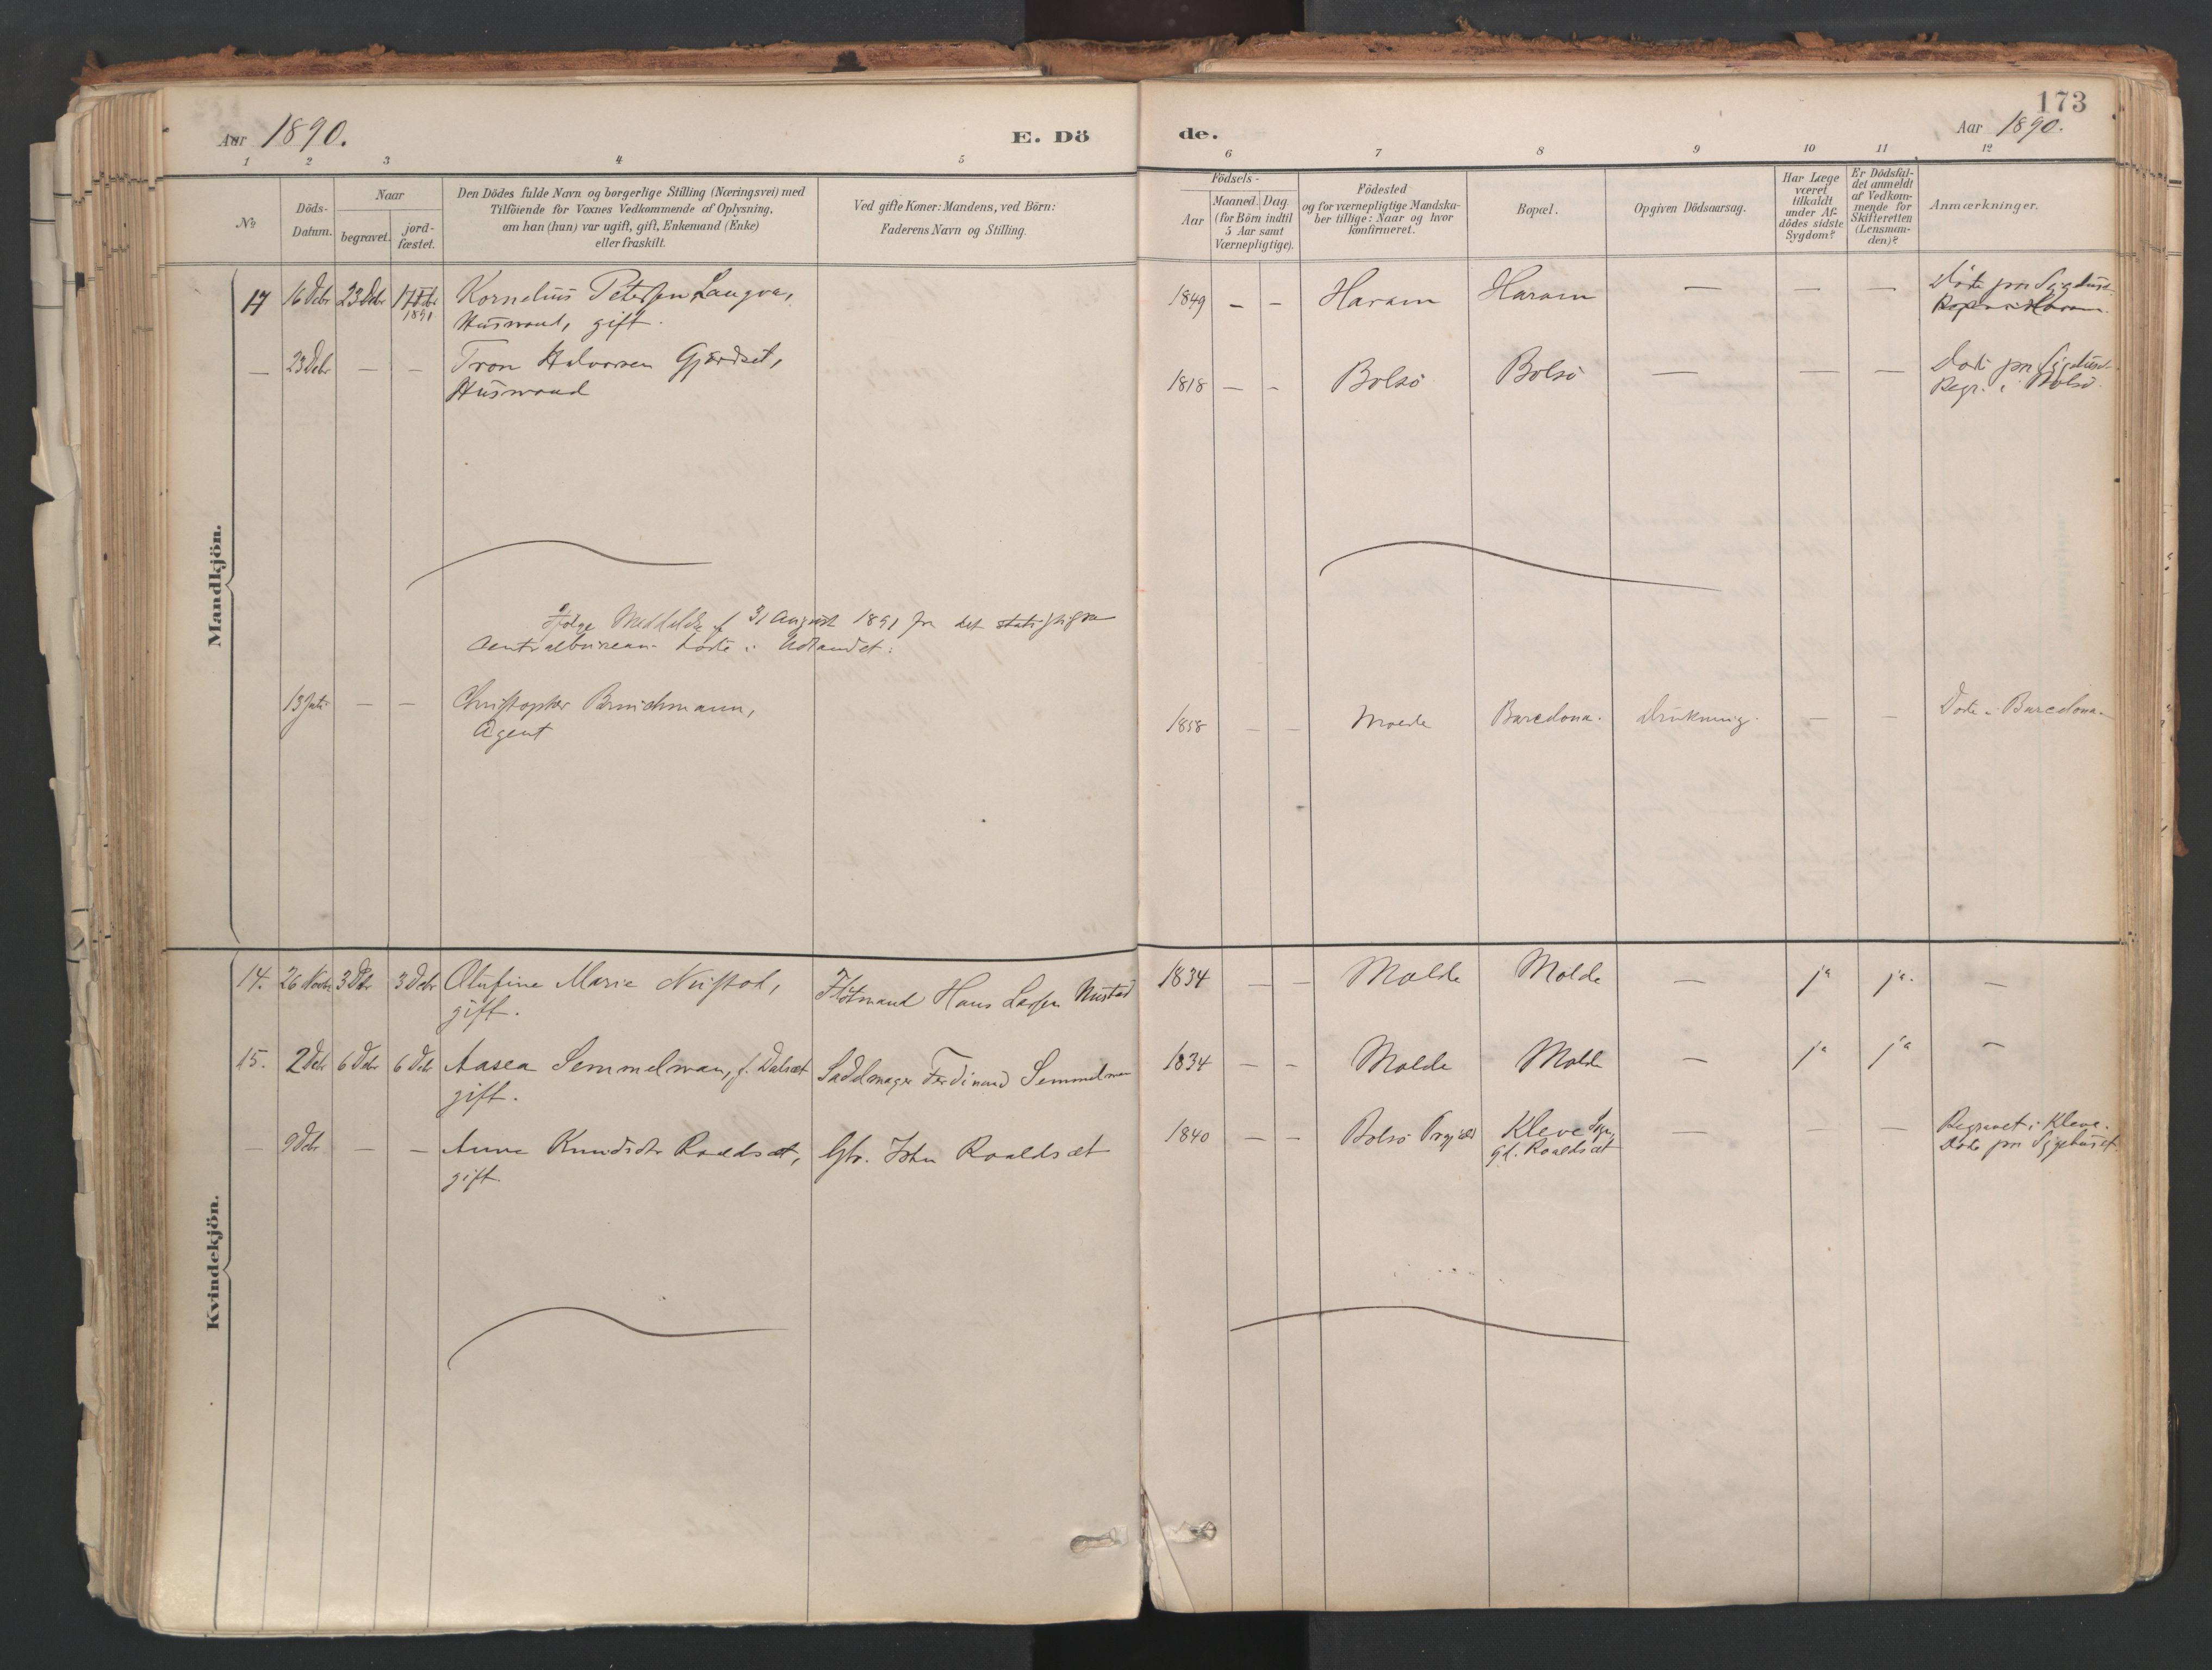 173
Aar 1890.
E. Dö
de.
Aar 1890.
1 2 3 4 5
6 7 8 9 10 11 12
№
Döds-
Datum.
Naar
begravet.
jord-
fæstet.
Den Dödes fulde Navn og borgerlige Stilling (Næringsvei) med
Tilföiende for Voxnes Vedkommende af Oplysning,
om han (hun) var ugift, gift, Enkemand (Enke)
eller fraskilt.
Ved gifte Koner: Mandens, ved Börn:
Faderens Navn og Stilling.
Födsels-
Aar
Maaned. Dag.
(for Börn indtil
5 Aar samt
Værnepligtige).
Födested
og for værnepligtige Mandska-
ber tillige: Naar og hvor
konfirmeret.
Bopæl.
Opgiven Dödsaarsag.
Har Læge
været
tilkaldt
under Af-
dödes sidste
Sygdom?
Er Dödsfal-
det anmeldt
af Vedkom-
mende for
Skifteretten
(Lensman-
den)?
Anmærkninger.
Mandkjön.
17 16 Debr 23 Debr 1891 Kornelius Petersen Langva,
Husmand, gift.
1849 – – Haram Haram — — — Döde paa Sygehuset
— 23 Debr — – Tron Halvorsen Gjærdset,
Husmand
1818 — – Bolsö Bolsö — — — Döde paa Sygehuset
Begr. i Bolsö.
Ifölge Meddelelse af 31 August 1891 fra det statistiske
Centralbureau döde i Udlandet:
13 Juli — — Christopher Bruchmann,
Agent
1858 — — Molde Barcelona. Drukning. — — Döde i Barcelona.
Kvindekjön.
14. 26 Novbr 3 Debr 3 Debr Olufine Marie Nustad,
gift.
Flötmand Hans Larsen Nustad
1834 — — Molde Molde — ja ja. —
15. 2 Debr 6 Debr 6 Debr Aasea Semmelman, f. Dalsæt
gift.
Sadelmager Ferdinand Semmelman
1834 — – Molde Molde — ja ja —
— 9 Debr — — Anne Knudsdtr Roaldsæt,
gift.
Gbr. John Roaldsæt
1840 — – Bolsö Prgjæld Kleve Sogn,
Gd. Roaldsæt
— — — Begravet i Kleve.
Döde paa Sygehuset.